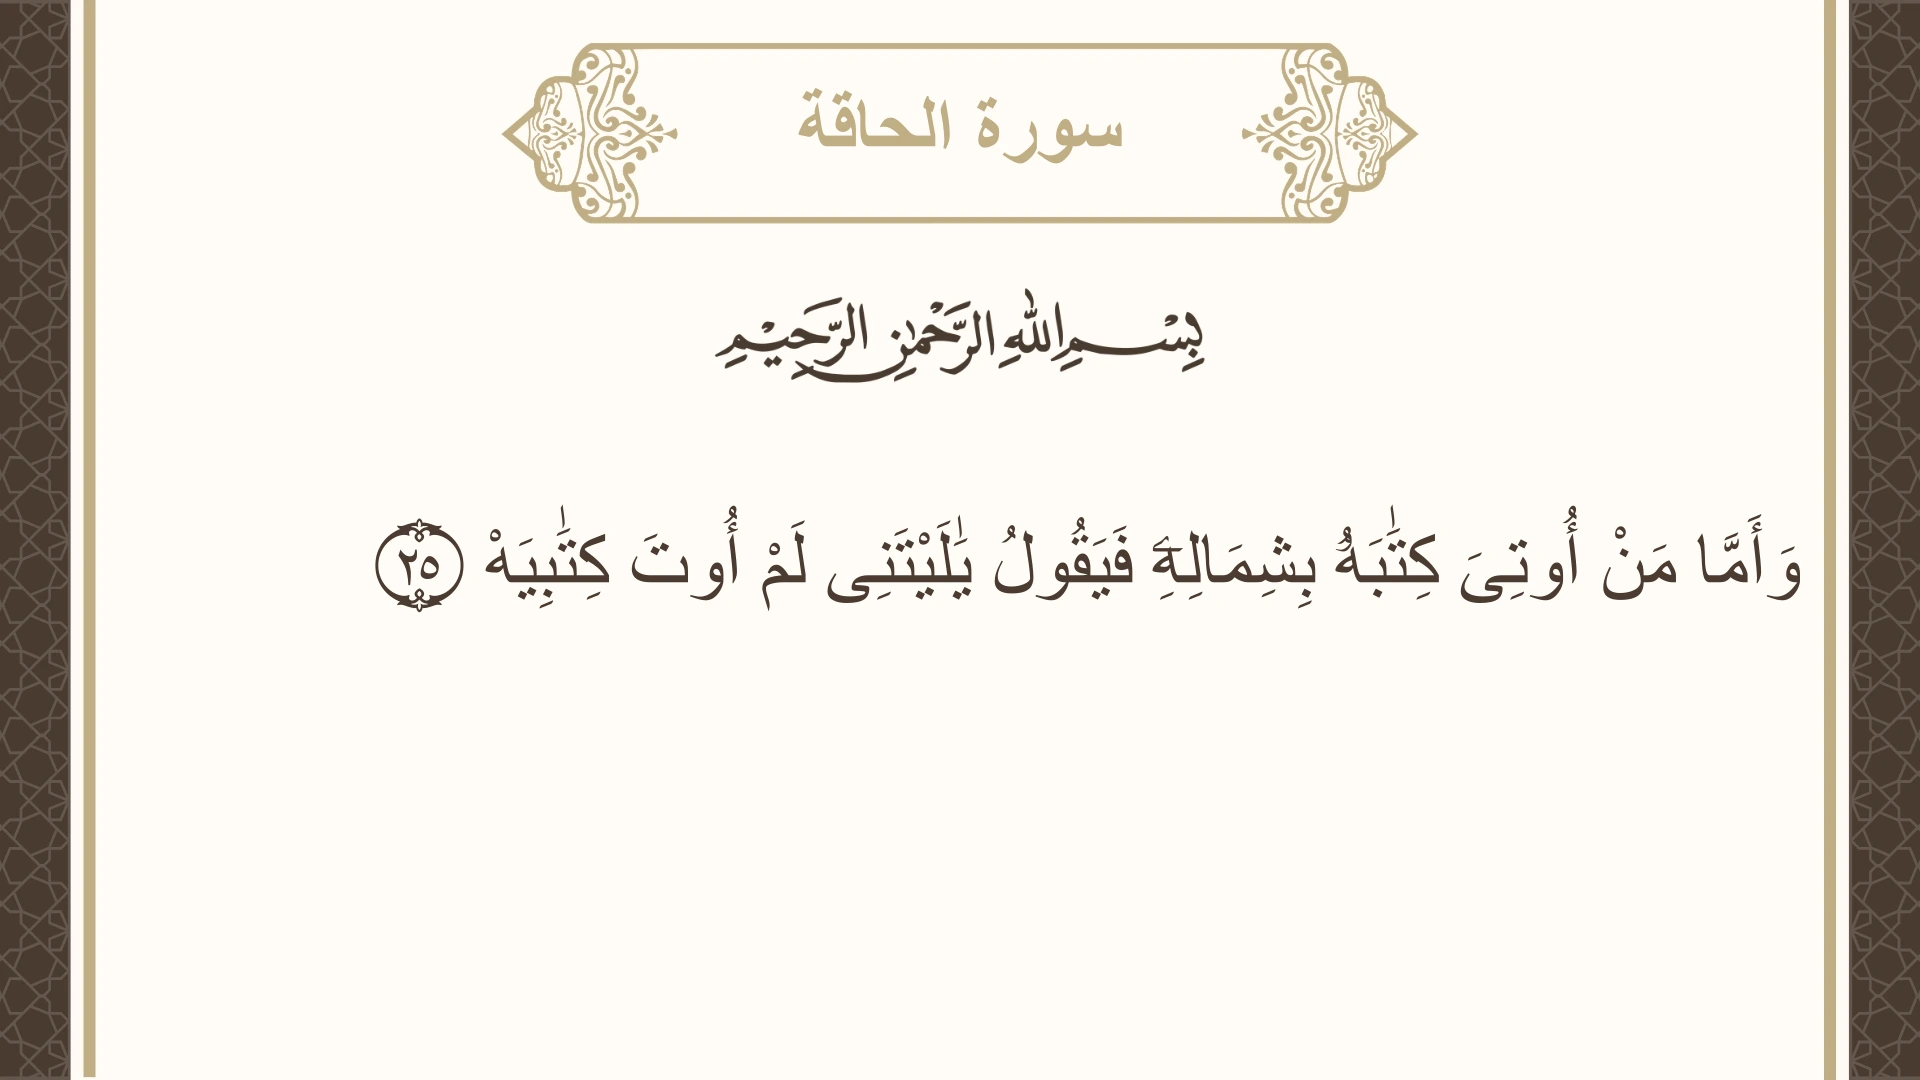 سورة الحاقة
بِسْمِ اللهِ الرَّحْمٰنِ الرَّحِيْمِ
وَأَمَّا مَنْ أُوتِىَ كِتَٰبَهُۥ بِشِمَالِهِۦ فَيَقُولُ يَٰلَيْتَنِى لَمْ أُوتَ كِتَٰبِيَهْ ٢٥